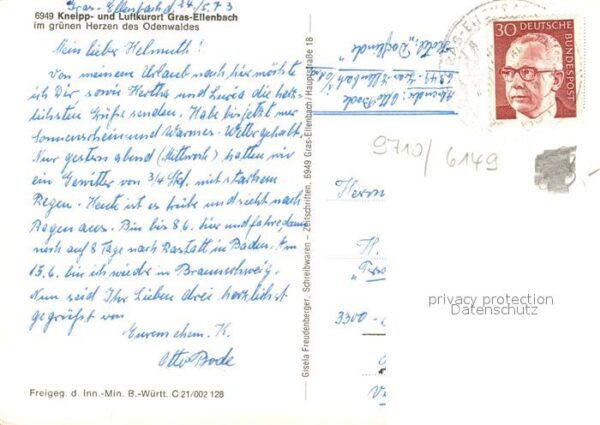 Gras-Ellenbach d. 24/5.73
6949 Kneipp- und Luftkurort Gras-Ellenbach
im grünen Herzen des Odenwaldes
Mein lieber Helmuth!
Von meinem Urlaub nach hier möchte
ich Dir sowie Hertha und Luzia die herz-
lichsten Grüße senden. Habe bis jetzt nur
Sonnenschein und warmes Wetter gehabt
Nur gestern abend (Mittwoch) hatten wir
ein Gewitter von 3/4 Std. mit starkem
Regen. Heute ist es trübe und sieht nach
Regen aus. Bin bis 8.6. hier und fahre dann
noch auf 8 Tage nach Rastatt in Baden. Am
15.6. bin ich wieder in Braunschweig.
Nun seid Ihr Lieben drei herzlichst
gegrüßt von
Eurem ehem. K.
Otto Bode
Freigeg. d. Inn.-Min. B.-Württ. C 21/002 128
Gisela Freudenberger, Schreibwaren - Zeitschriften, 6949 Gras-Ellenbach, Hauptstraße 18
Absender: Otto Bode
6949 Gras-Ellenbach
Hotel
30
DEUTSCHE
BUNDESPOST
9710/6149
Herrn
H.
privacy protection
Datenschutz